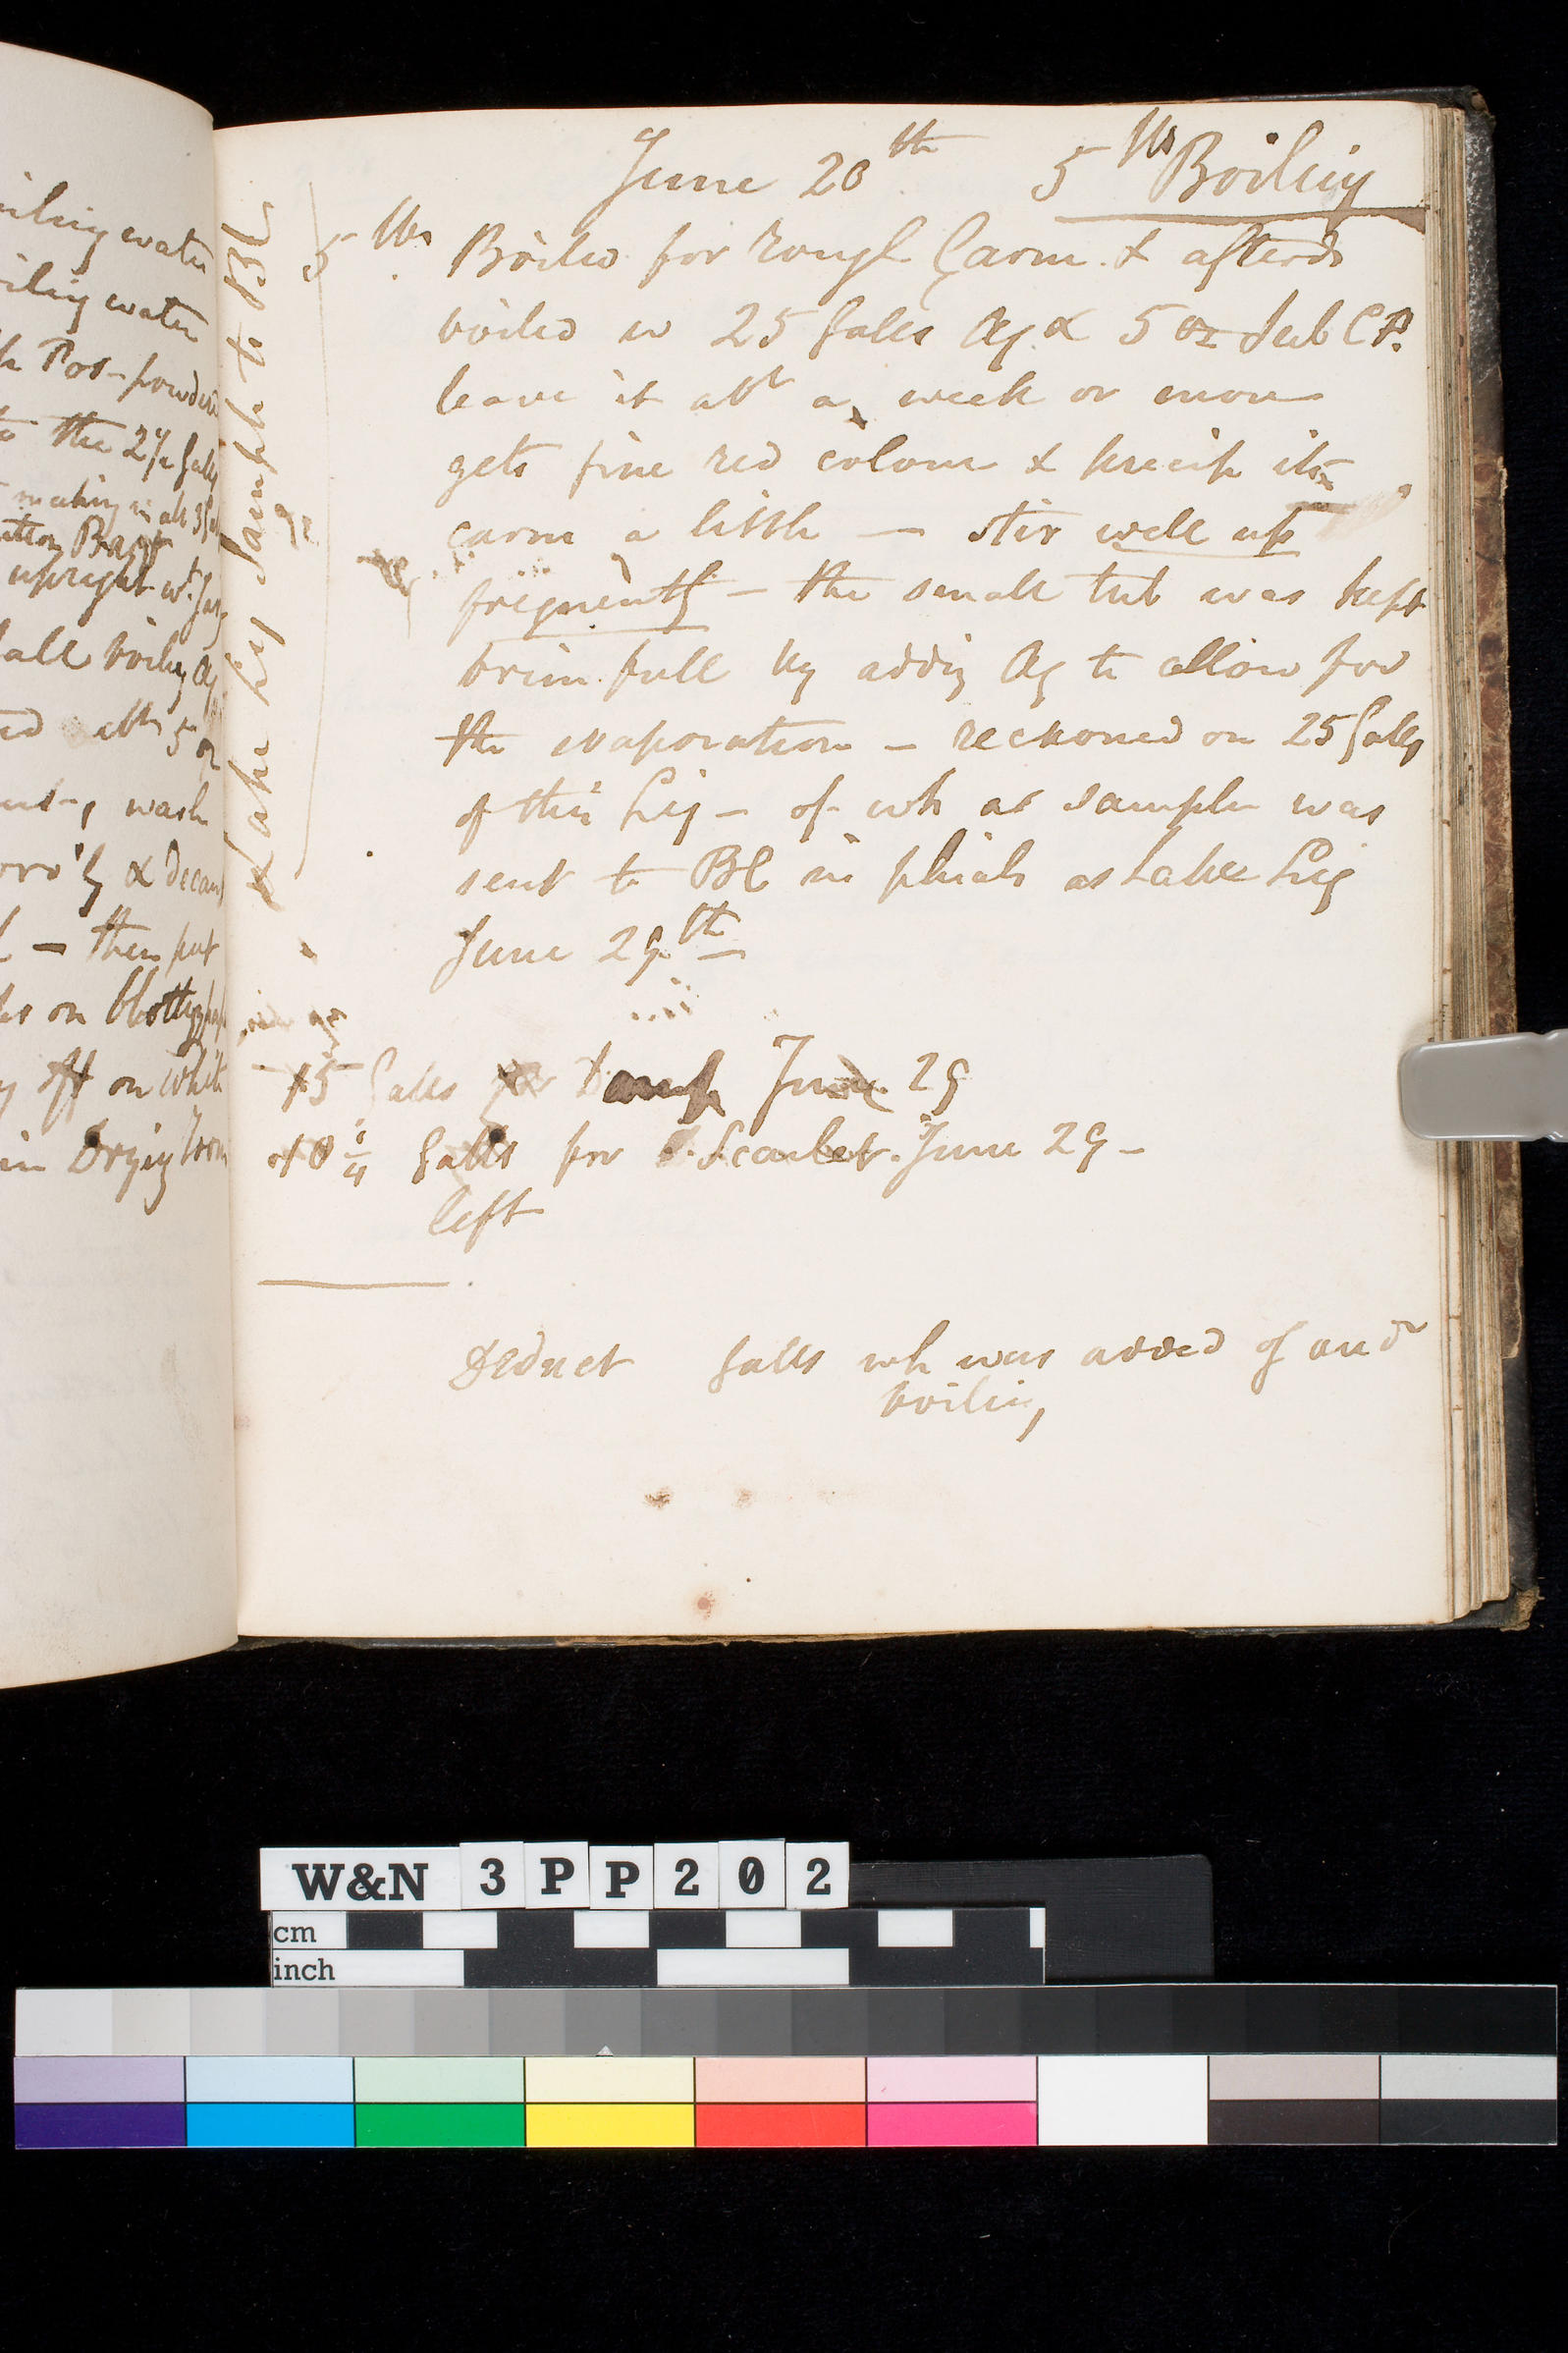 iling water
iling water
Pos-powder
to the 2 1/2 Galls
making in all 3 Ga
upright wt. Jar
all boiling Aq
abt 5 oz
wash
oro'ly & decant
— then put
on blotting pap
off on white
in Drying Room
Lake Liq Sample to BL
June 20th 5 lbs Boiling
5 lbs Boiled for rough Carm. & afterds
boiled in 25 Galls Aq & 5 oz Sub C P.
leave it abt a week or more
gets fine red colour & precip its
carm a little — stir well up
frequently — the small tub was kept
brim full by addig Aq to allow for
the evaporation — reckoned on 25 Galls
of this Liq — of wh a sample was
sent to BL in phials as Lake Liq
June 29th
15 Galls for June 29
10 1/4 Galls for Scarlet. June 29 —
left
Deduct Galls wh was added of 2nd
boiling
W&N 3PP202
cm
inch